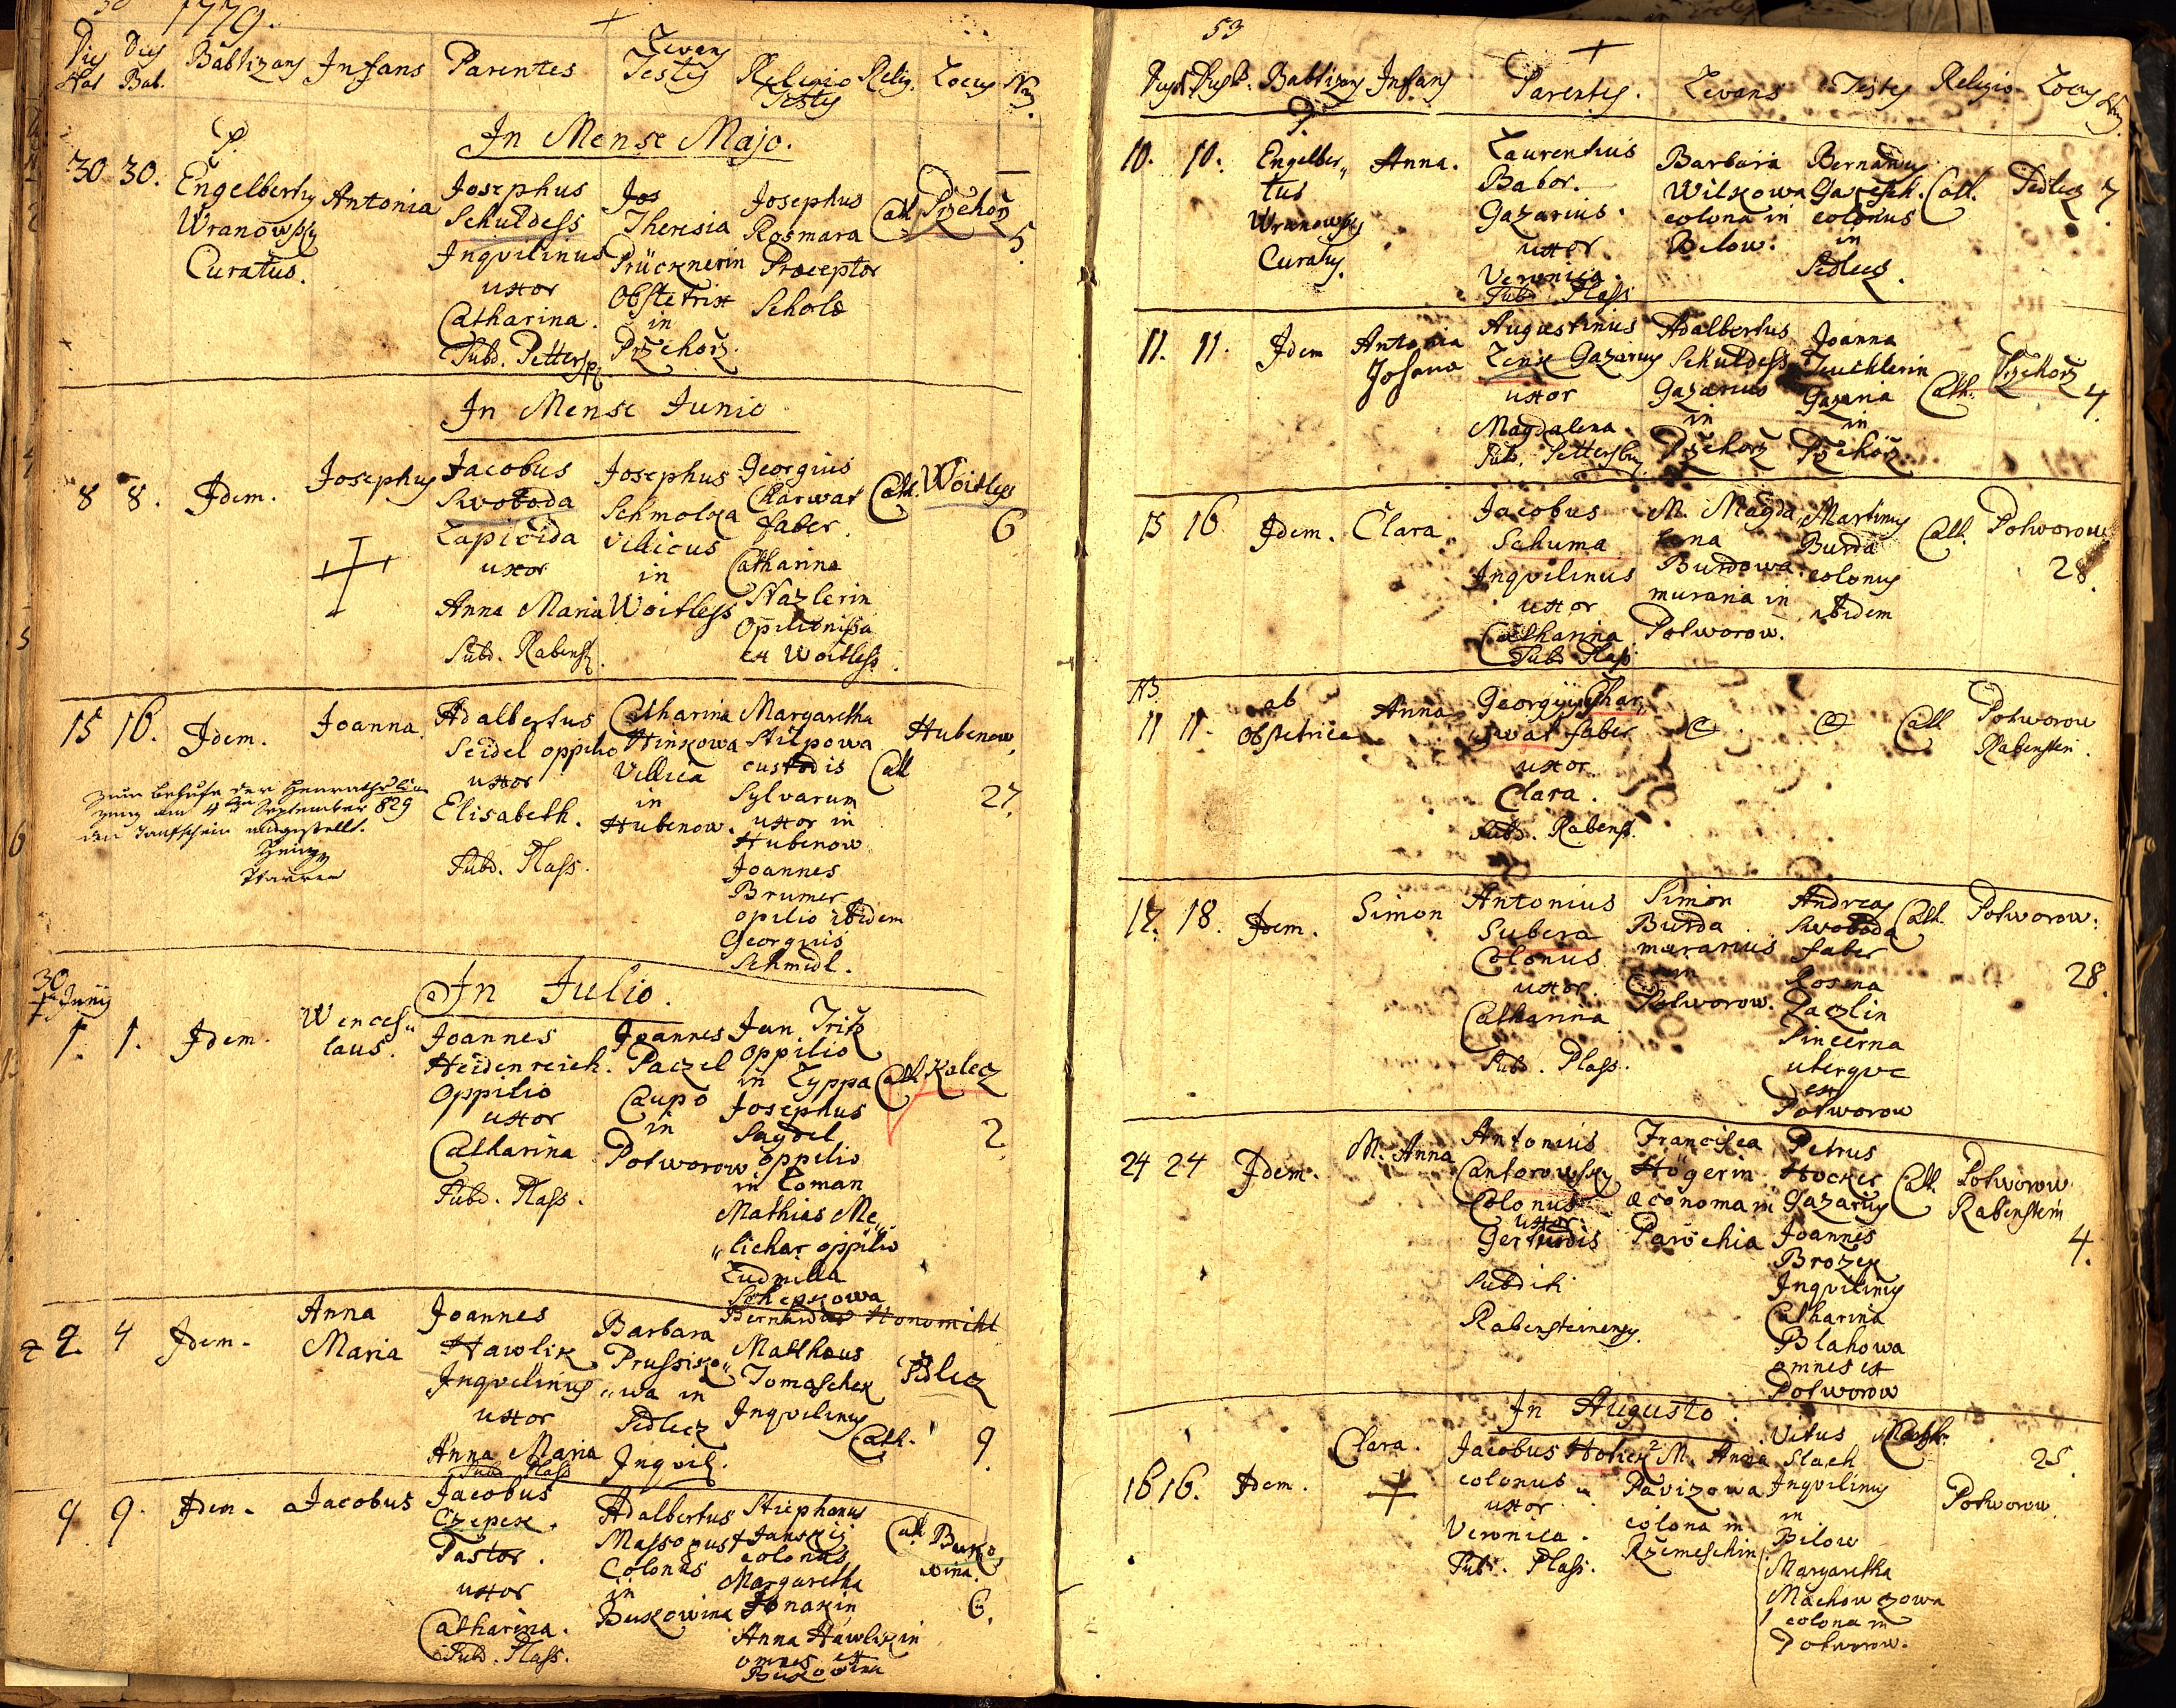 1779.
Dies Nat
Dies Bab.
Babtizans
Infans
Parentes
Levans
Testes
Religio
Testes
Relig.
Locus
Nr.
In Mense Majo.
30
30.
P.
Engelbertus
Wranowsky
Curatus.
Antonia
Josephus
Schuldess
Inqvilinus
uxor
Catharina.
Subd. Petters.
Jos
Theresia
Prücknerin
Obstetrix
in
Przehorz.
Josephus
Rosmara
Praeceptor
Schola
Cath.
Przehorz
5.
In Mense Junio
8
8.
Idem.
Josephus
Jacobus
Swoboda
Lapicida
uxor
Anna Maria
Subd. Rabens.
Josephus
Schmolka
Villicus
in
Woitless
Georgius
Charwat
faber.
Catharina
Nazlerin
Opilionissa
ex Woitless.
Cath.
Woitless
6
15
16.
Idem.
Joanna.
Adalbertus
Seidel oppilio
uxor
Elisabeth.
Subd. Plass.
Catharina
Hinkowa
Villica
in
Hubenow.
Margaretha
Stilpowa
custodis
Sylvarum
uxor in
Hubenow
Joannes
Brumer
opilio ibidem
Georgius
Schmidl.
Cath
Hubenow,
27.
am 4ten September 829
den Taufschein ausgestellt.
In Julio.
30
Junij
1.
1.
Idem.
Wences"
laus.
Joannes
Heidenreich.
Oppilio
uxor
Catharina
Subd. Plass.
Joannes
Paczel
Caupo
in
Potworow
Jan Tritz
oppilio
in Lyppa
Josephus
Saydel
oppilio
in Loman
Mathias Me"
"lichar oppilio
Ludmilla
Cath
Kalecz
2.
2.
4
Idem.
Anna
Maria
Joannes
Hawlik
Inqvilinus
uxor
Anna Maria
Subd. Plass
Barbara
Prussiko"
"wa in
Sedlecz
Inqvil.
Bernardus Honomichl
Mathaus
Tomaschek
Inqvilinus
Cath.
Sedlecz
9.
9
9.
Idem.
Jacobus
Jacobus
Czepek.
Pastor.
uxor
Catharina.
Subd. Plass.
Adalbertus
Massopust
Colonus
in
Bukowina
Stephanus
Janskij
colonus
Margaretha
Jonakin
Anna Hawlikin
omnes ex
Bukowina
Cath
Buko
wina.
6.
53
Babtizans
Infans
Parentes.
Levans
Testes
Religio
Locus
10.
10.
P.
Engelber"
tus
Wranowsky
Curatus.
Anna.
Laurentius
Babor.
Gazarius.
uxor
Veronica.
Subd. Plass
Barbara
Wilkowa
colona in
Bilow.
Bernardus
Gaxesch.
colonus
in
Sedlecz.
Cath.
Sedlecz
7.
11.
11.
Idem
Antonia
Johana
Augustinus
Zenk Gazarius
uxor
Magdalena.
Subd. Pettersbur
Adalbertus
Schuldess
Gazarius
in
Przehorz
Joanna
Teuchlerin
Gazaria
in
Przehorz.
Cath.
Przehorz
4.
15
16
Idem.
Clara.
Jacobus
Schuma
Inqvilinus
uxor
Catharina
Subd Plass
M. Magda"
lena
Burdowa
murana in
Potworow.
Martinus
Burda
colonus
ibidem
Cath.
Potworow
28.
NB.
11
11.
ab
obstetrica
Anna
Georgius Char"
wat faber
uxor
Clara.
Subd. Rabens.
Cath
Potworow
Rabenstein.
17.
18.
Idem.
Simon
Antonius
Subera
Colonus
uxor.
Catharina
Subd. Plass.
Simon
Burda
murarius
in
Potworow.
Andreas
Swoboda
faber
Rosina
Laczlin
Pincerna
uterqve
ex
Potworow
Cath.
Potworow.
28.
24
24
Idem.
M. Anna
Antonius
Cantorowsky
Colonus
uxor.
Gertrudis
Subditi
Rabensteinensy.
Francisca
Högerin
oeconoma in
Parochia
Petrus
Hocker
Gazarius
Joannes
Brozek
Inqvilinus
Catharina
Blahowa
omnes ex
Potworow
Cath.
Potworow
Rabenstein
4.
In Augusto.
16
16.
Idem.
Clara.
Jacobus Holick
colonus
uxor
Veronica.
Subd. Plass.
M. Anna
Pavizowa
colona in
Rzemeschin
Vitus
Slach
Inqvilinus
in
Bilow
Margaretha
Machowczowa
colona in
Potworow.
Cath.
25.
Potworow.